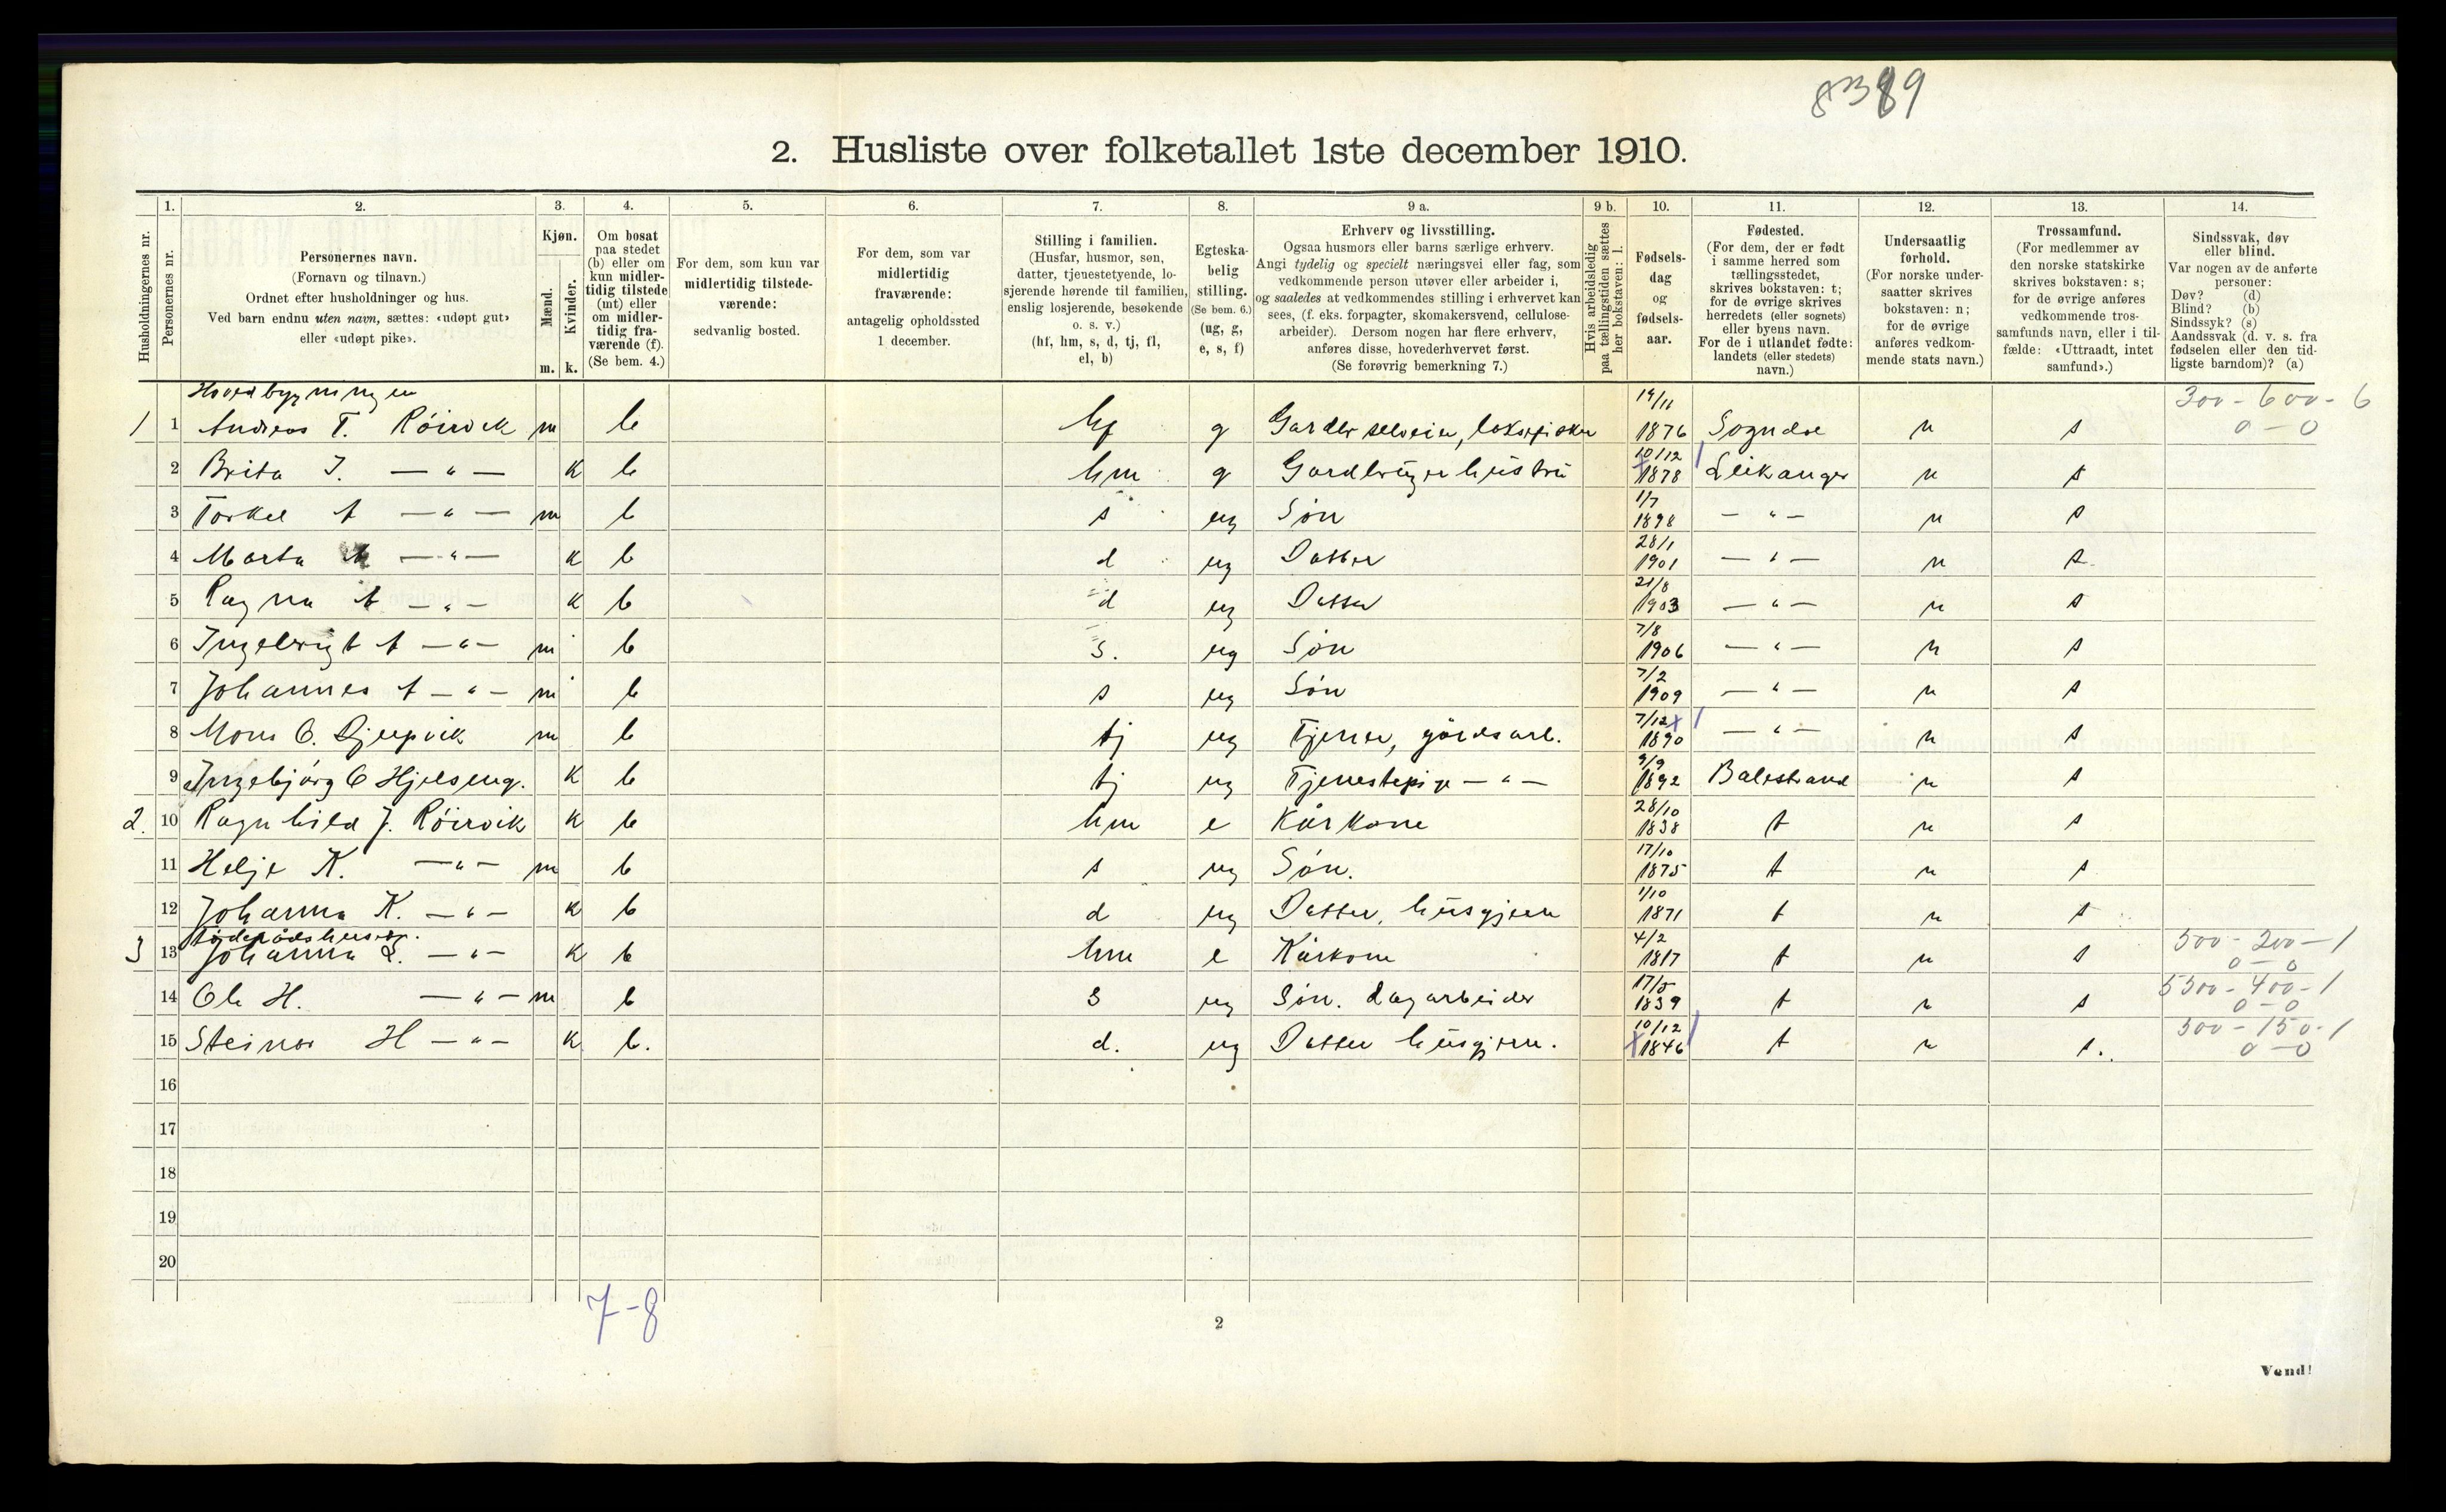 8389
2. Husliste over folketallet 1ste december 1910.
Husholdningernes nr.
1.
Personernes nr.
2.
Personernes navn.
(Fornavn og tilnavn.)
Ordnet efter husholdninger og hus.
Ved barn endnu uten navn, sættes: «udøpt gut»
eller «udøpt pike».
3.
Kjøn.
Mænd.
Kvinder.
m. k.
4.
Om bosat
paa stedet
(b) eller om
kun midler-
tidig tilstede
(mt) eller
om midler-
tidig fra-
værende (f).
(Se bem. 4.)
5.
For dem, som kun var
midlertidig tilstede-
værende:
sedvanlig bosted.
6.
For dem, som var
midlertidig
fraværende:
antagelig opholdssted
1 december.
7.
Stilling i familien.
(Husfar, husmor, søn,
datter, tjenestetyende, lo-
sjerende hørende til familien,
enslig losjerende, besøkende
o. s. v.)
(hf, hm, s, d, tj, fl,
el, b)
8.
Egteska-
belig
stilling.
(Se bem. 6.)
(ug, g,
e, s, f)
9 a.
Erhverv og livsstilling.
Ogsaa husmors eller barns særlige erhverv.
Angi tydelig og specielt næringsvei eller fag, som
vedkommende person utøver eller arbeider i,
og saaledes at vedkommendes stilling i erhvervet kan
sees, (f. eks. forpagter, skomakersvend, cellulose-
arbeider). Dersom nogen har flere erhverv,
anføres disse, hovederhvervet først.
(Se forøvrig bemerkning 7.)
9 b.
Hvis arbeidsledig
paa tællingstiden sættes
her bokstaven: l.
10.
Fødsels-
dag
og
fødsels-
aar.
11.
Fødested.
(For dem, der er født
i samme herred som
tællingsstedet,
skrives bokstaven: t;
for de øvrige skrives
herredets (eller sognets)
eller byens navn.
For de i utlandet fødte:
landets (eller stedets)
navn.)
12.
Undersaatlig
forhold.
(For norske under-
saatter skrives
bokstaven: n;
for de øvrige
anføres vedkom-
mende stats navn.)
13.
Trossamfund.
(For medlemmer av
den norske statskirke
skrives bokstaven: s;
for de øvrige anføres
vedkommende tros-
samfunds navn, eller i til-
fælde: «Uttraadt, intet
samfund».)
14.
Sindssvak, døv
eller blind.
Var nogen av de anførte
personer:
Døv? (d)
Blind? (b)
Sindssyk? (s)
Aandssvak (d. v. s. fra
fødselen eller den tid-
ligste barndom)? (a)
Hovedbygningen
1 1 Andreas T. Röirvik m b hf g Gardbr selveier, laksefisker 19/11 1876 Sogndal n s 300-600-6 0-0
2 Brita I. —"— k b hm g Gardbruger hustru 10/12 1878 Leikanger n s
3 Torkel A —"— m b s ug Sön 1/7 1898 —"— n s
4 Marta A —"— k b d ug Datter 28/1 1901 —"— n s
5 Ragna A —"— k b d ug Datter 21/8 1903 —"— n s
6 Ingebrigt A —"— m b s. ug Sön 7/8 1906 —"— n s
7 Johannes A —"— m b s ug Sön 7/2 1909 —"— n s
8 Mons O. Djupvik m b tj ug Tjener, gårdsarb. 7/12 1890 —"— n s
9 Ingebjörg O Hjelseng. k b tj ug Tjenestepige —"— 9/9 1892 Balestrand n s
2. 10 Ragnhild J. Röirvik k b hm e Kårkone 28/10 1838 t n s
11 Helje K. —"— m b s ug Sön. 17/10 1875 t n s
12 Johanna K. —"— k b d ug Datter, husgjern 1/10 1871 t n s
föderådshusene.
3 13 Johanna L. —"— k b hm e Kårkone 4/2 1817 t n s 500-200-1 0-0
14 Ole H. —"— m b s ug Sön. dagarbeider 17/5 1839 t n s 5300-400-1 0-0
15 Steinor H —"— k b. d. ug Datter husgjern. 10/12 1846 t n s. 500-150-1 0-0
16
17
18
19
20
7-8
2
Vend!